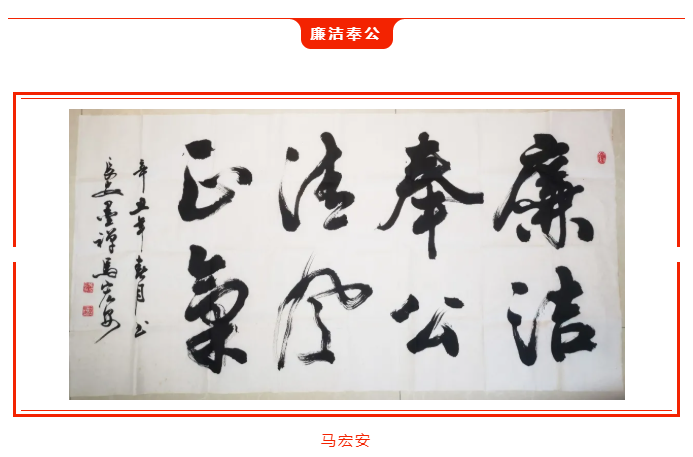 廉洁奉公
廉洁
奉公
清风
正氣
辛丑年春月书
长安墨禅马宏安
马宏安